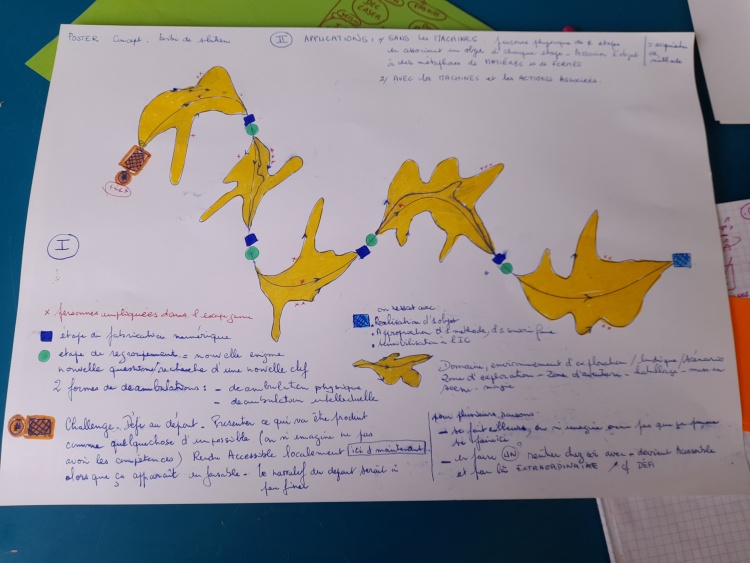 POSTER Concept. Boîte de solutions
II APPLICATIONS: 1/ SANS les MACHINES
en associant un objet à chaque étape. Associer l'objet
à des métaphores de MATIÈRES et de FORMES
2/ AVEC les MACHINES et les ACTIONS ASSOCIÉES.
I
x personnes impliquées dans l'escape game
étape de fabrication numérique
étape de regroupement = nouvelle énigme
nouvelle question/recherche d'une nouvelle clef
2 formes de déambulations: - déambulation physique
- déambulation intellectuelle
on ressort avec
. Réalisation d'1 objet
. Appropriation d'1 méthode, d'1 savoir faire
. Sensibilisation à l'IC
Domaine, environnement d'exploration / ludique / scénario
Zone d'exploration - Zone d'aventure - habillage - mise en
scène - image
Challenge. Défi au départ. Présenter ce qui va être produit
comme quelque chose d'impossible (on n'imagine pas
avoir les compétences) Rendu Accessible localement ici & maintenant
alors que ça apparait infaisable. Le narratif du départ serait à
peu final
pour plusieurs raisons:
- se fait ailleurs, on n'imagine pas que ça puisse
se faire ici
- en faire UN, rentrer chez soi avec - devient Accessible
et par là EXTRAORDINAIRE DÉFI